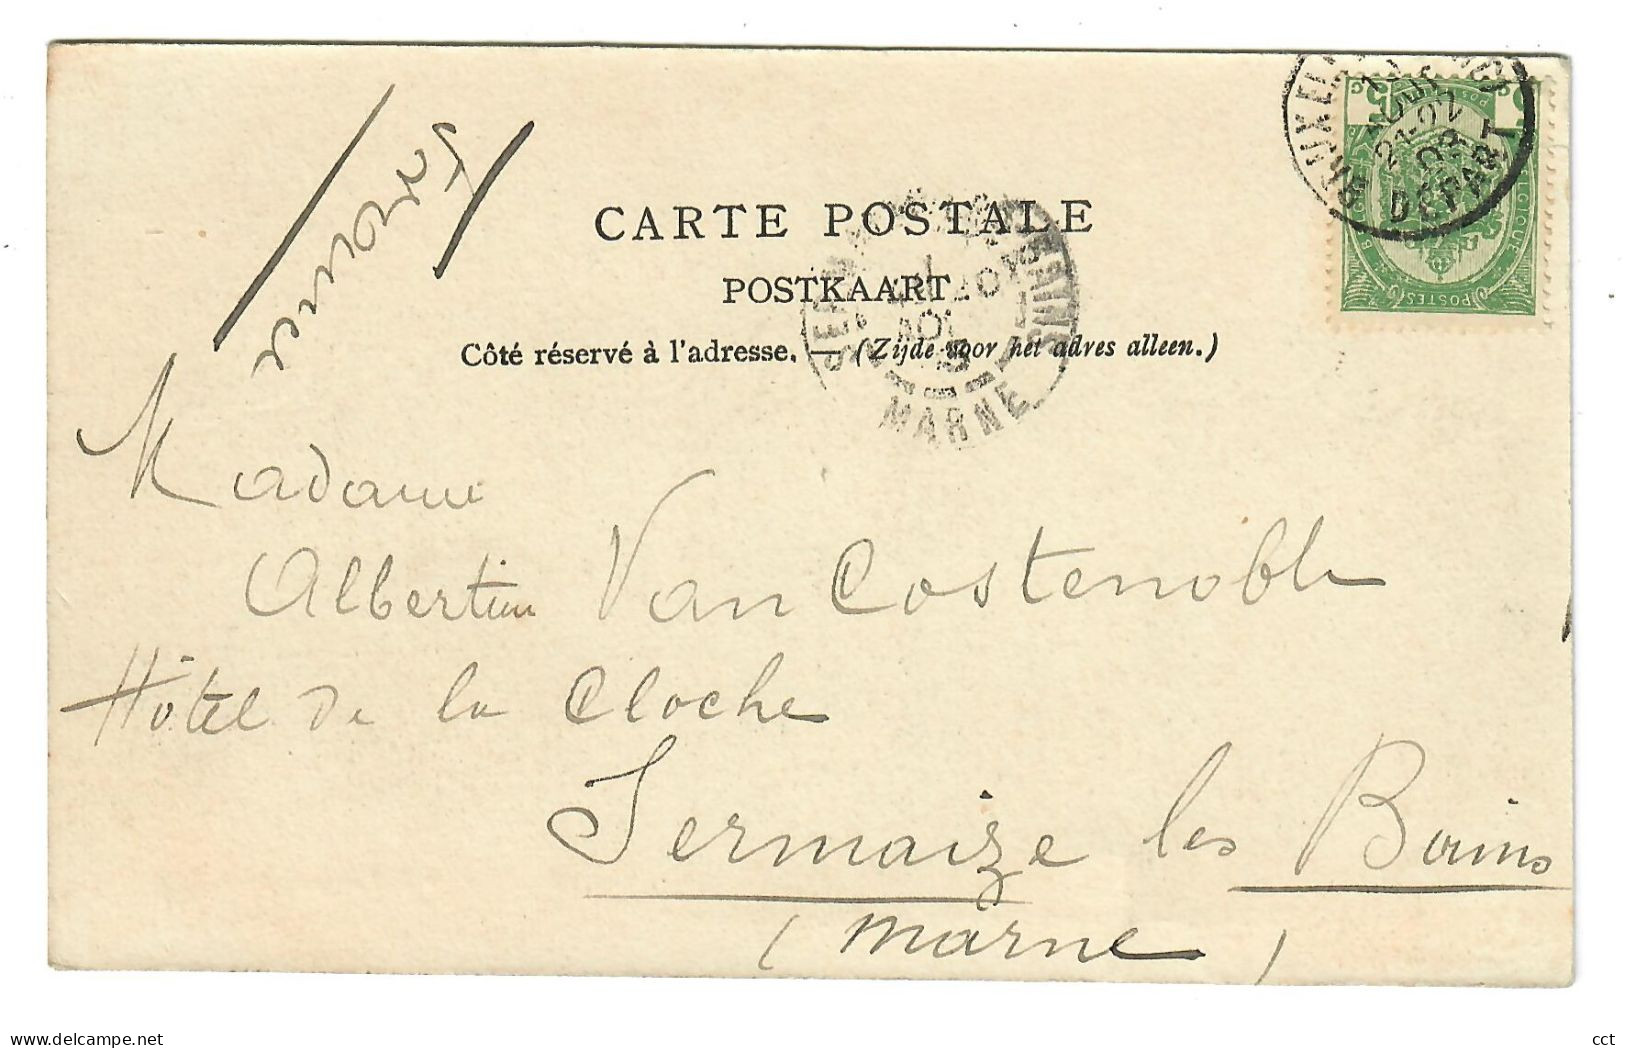 CARTE POSTALE
POSTKAART
Côté réservé à l'adresse. — (Zijde voor het adres alleen.)
Madame
Albertine Van Costenoble
Hôtel de la Cloche
Sermaize les Bains
(Marne)
BRUXELLES
DÉPART
MARNE
BELGIQUE
POSTES
www.delcampe.net
cct